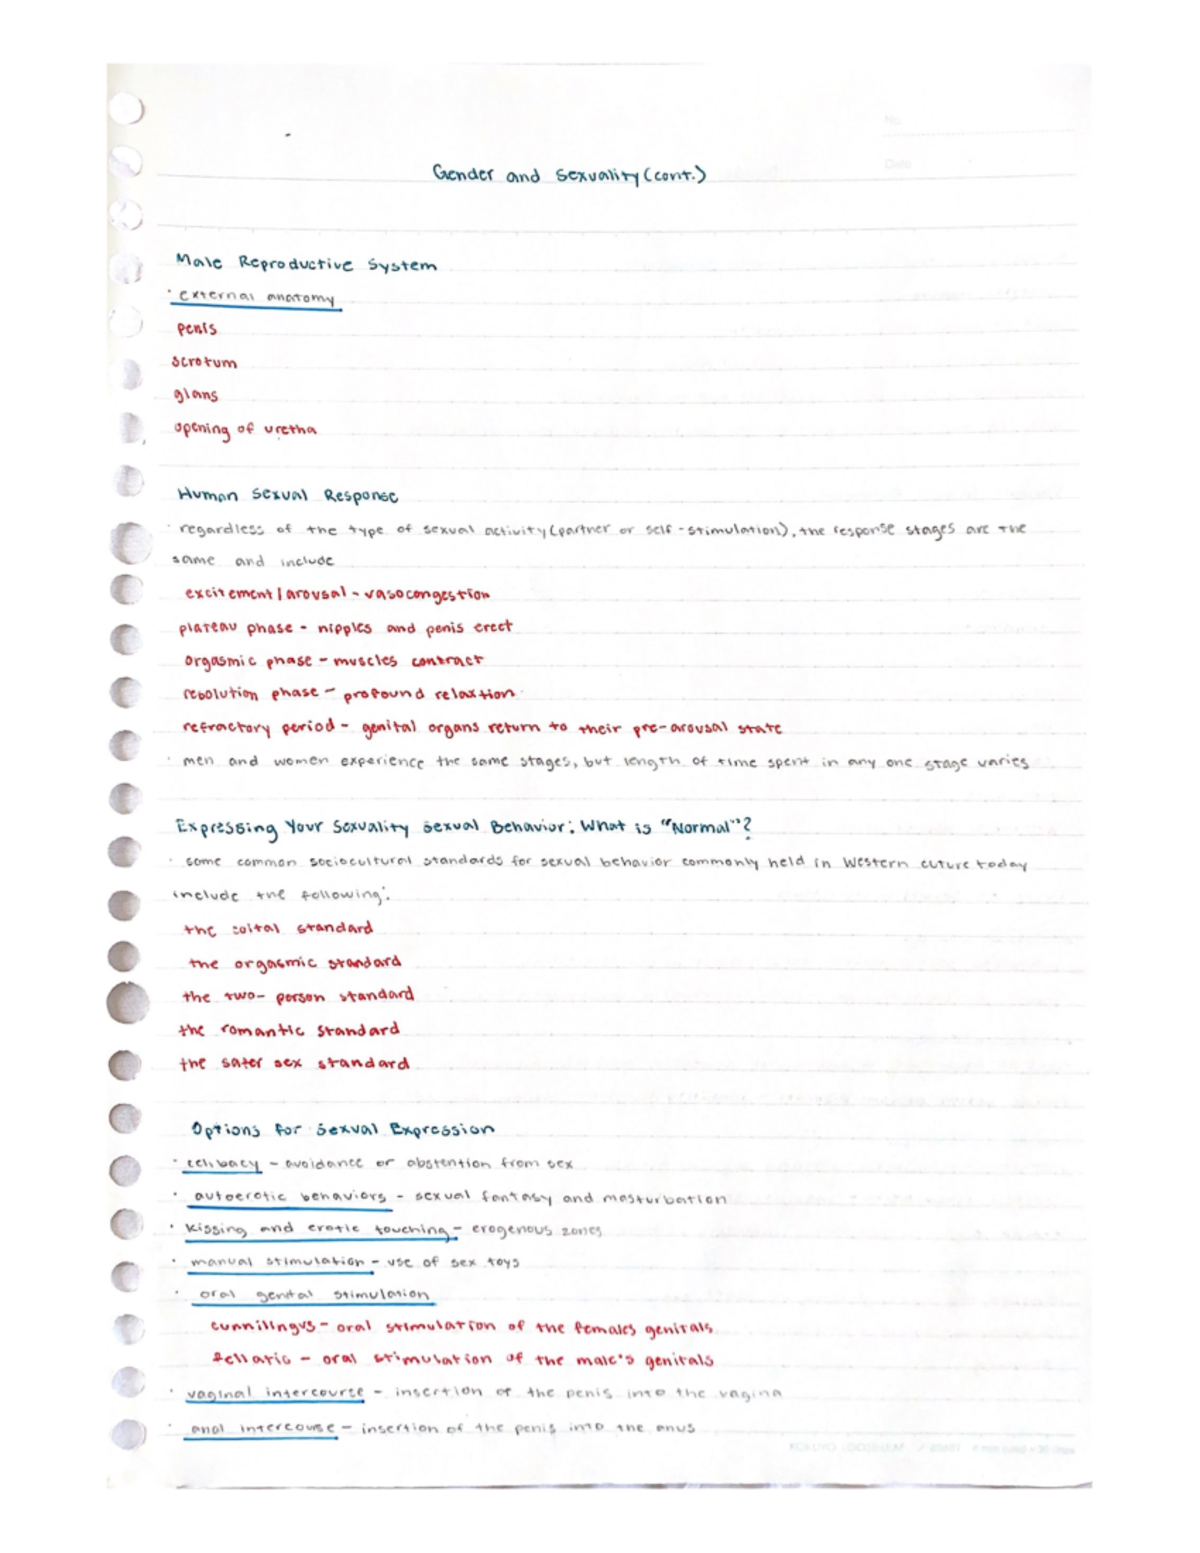 No.
Date
Gender and Sexuality (cont.)
Male Reproductive System
· external anatomy
penis
scrotum
glans
opening of uretha
Human Sexual Response
· regardless of the type of sexual activity (partner or self-stimulation), the response stages are the
same and include
excitement/arousal - vasocongestion
plateau phase - nipples and penis erect
orgasmic phase - muscles contract
resolution phase - profound relaxtion
refractory period - genital organs return to their pre-arousal state
· men and women experience the same stages, but length of time spent in any one stage varies
Expressing Your Sexuality Sexual Behavior: What is "Normal"?
· some common sociocultural standards for sexual behavior commonly held in Western cuture today
include the following:
the coital standard
the orgasmic standard
the two-person standard
the romantic standard
the safer sex standard
Options for Sexual Expression
· celibacy - avoidance or abstention from sex
· autoerotic behaviors - sexual fantasy and masturbation
· kissing and erotic touching - erogenous zones
· manual stimulation - use of sex toys
· oral genital stimulation
cunnilingus - oral stimulation of the females genitals
fellatio - oral stimulation of the male's genitals
· vaginal intercourse - insertion of the penis into the vagina
· anal intercouse - insertion of the penis into the anus